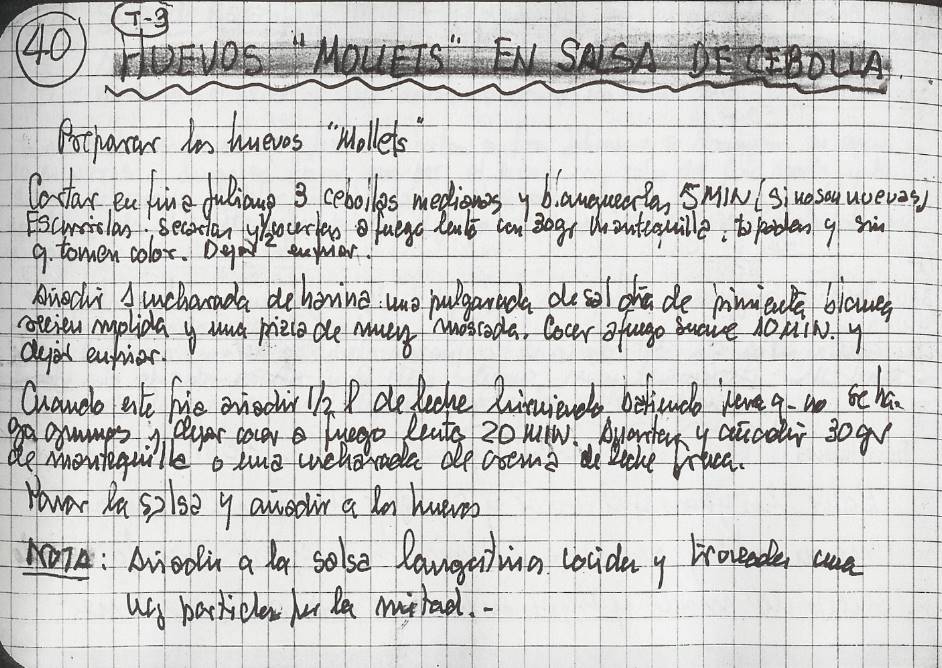 40
T-3
HUEVOS "MOLLETS" EN SALSA DE CEBOLLA
Preparar los huevos "Mollets"
Cortar en fina juliana 3 cebollas medianas y blanquearlas 5 MIN (si no son nuevas)
Escurrirlas. Secarlas y cocerlas a fuego lento con 30gr mantequilla, tapadas y sin
q. tomen color. Dejar enfriar.
Añadir 1 cucharada de harina una pulgarada de sal otra de pimienta blanca
recien molida y una pizca de nuez moscada. Cocer a fuego suave 10 MIN. y
dejar enfriar.
Cuando esté fria añadir 1/2 l de leche hirviendo batiendo para q- no se ha-
ga grumos y dejar cocer a fuego lento 20 MIN. Apartar y añadir 30 gr
de mantequilla o una cucharada de crema de leche fresca.
la salsa y añadir a los huevos
NOTA: Añadir a la salsa langostinos cocidos y troceados una
vez partidos por la mitad.-